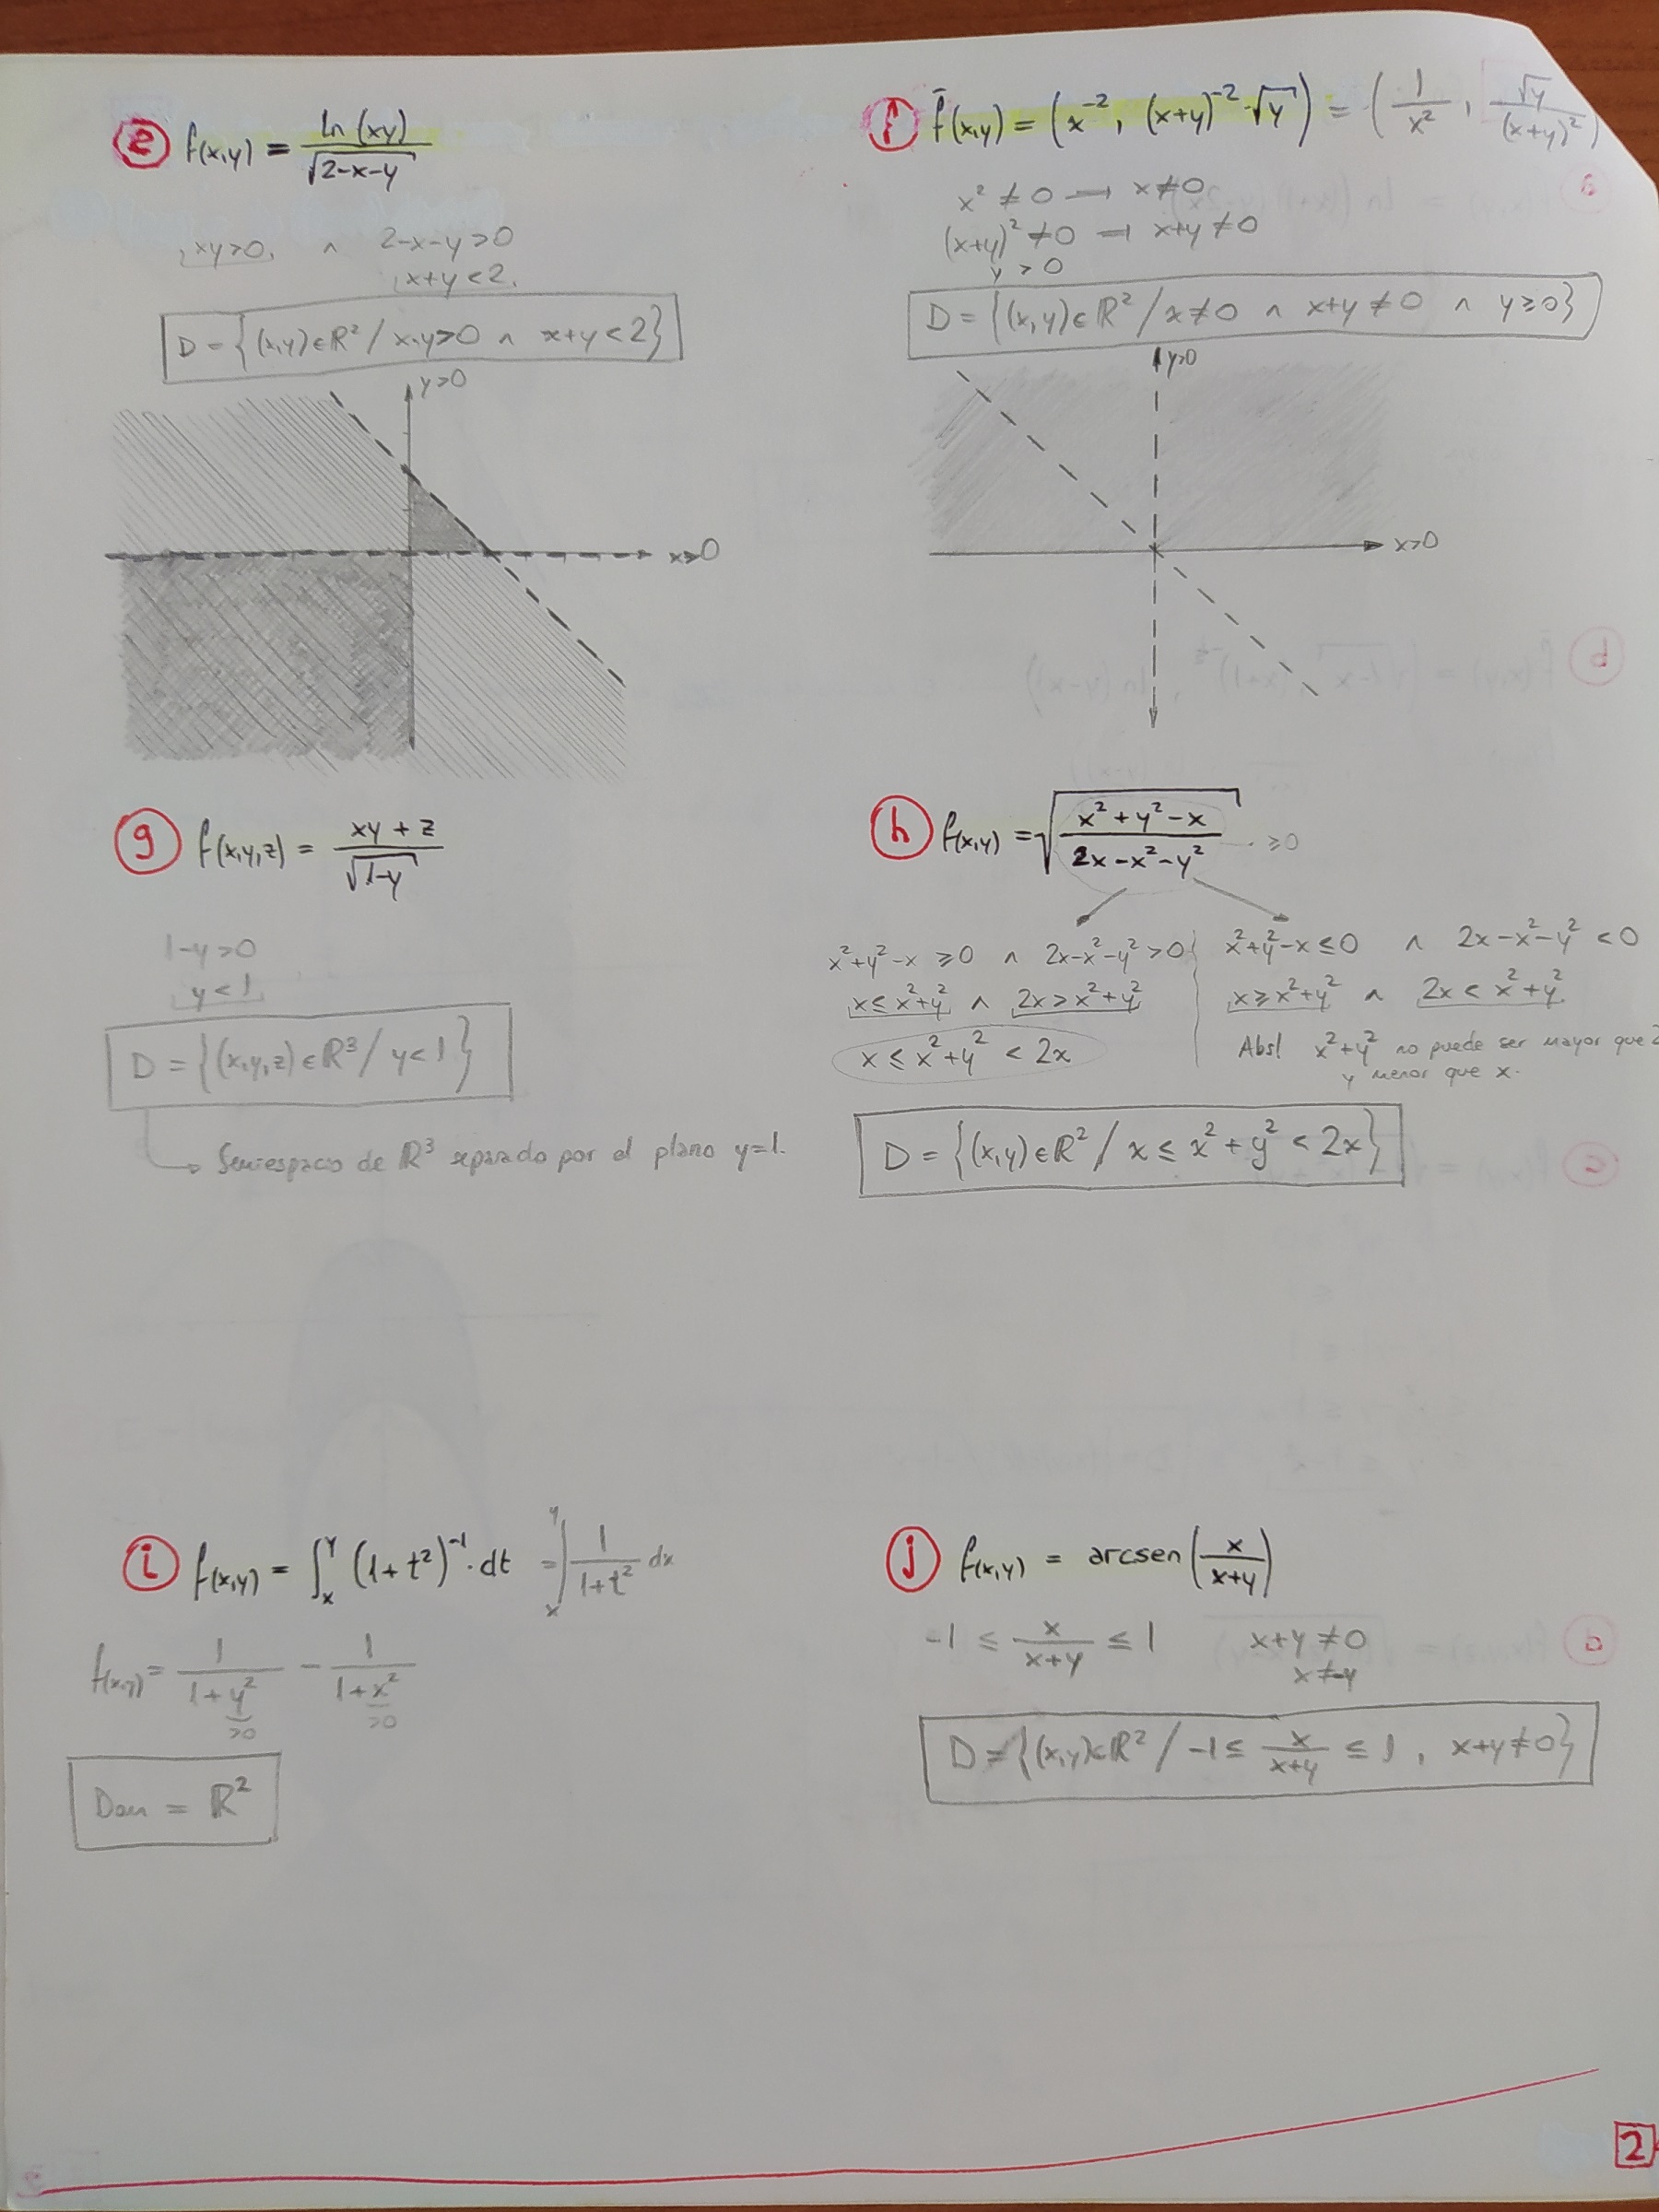 e f(x,y) = ln(xy) / √(2-x-y)
xy>0, ∧ 2-x-y>0
x+y<2,
D = {(x,y)∈ℝ² / x·y>0 ∧ x+y<2}
y>0
x>0
f f̄(x,y) = (x⁻², (x+y)⁻²·√y) = (1/x², √y/(x+y)²)
x² ≠ 0 → x≠0
(x+y)² ≠0 → x+y≠0
y>0
D = {(x,y)∈ℝ² / x≠0 ∧ x+y≠0 ∧ y≥0}
y>0
x>0
g f(x,y,z) = (xy+z) / √(1-y)
1-y>0
y<1
D = {(x,y,z)∈ℝ³ / y<1}
Semiespacio de ℝ³ separado por el plano y=1.
h f(x,y) = √((x²+y²-x) / (2x-x²-y²)) ≥0
x²+y²-x ≥0 ∧ 2x-x²-y²>0
x≤x²+y² ∧ 2x>x²+y²
x ≤ x²+y² < 2x
x²+y²-x≤0 ∧ 2x-x²-y²<0
x≥x²+y² ∧ 2x<x²+y²
Abs! x²+y² no puede ser mayor que 2
y menor que x.
D = {(x,y)∈ℝ² / x ≤ x²+y² < 2x}
i f(x,y) = ∫ₓʸ (1+t²)⁻¹·dt = ∫ₓʸ 1/(1+t²) dx
f(x,y) = 1/(1+y²) - 1/(1+x²)
>0 >0
Dom = ℝ²
j f(x,y) = arcsen(x/(x+y))
-1 ≤ x/(x+y) ≤ 1 x+y≠0
x≠-y
D = {(x,y)∈ℝ² / -1≤ x/(x+y) ≤ 1, x+y≠0}
2